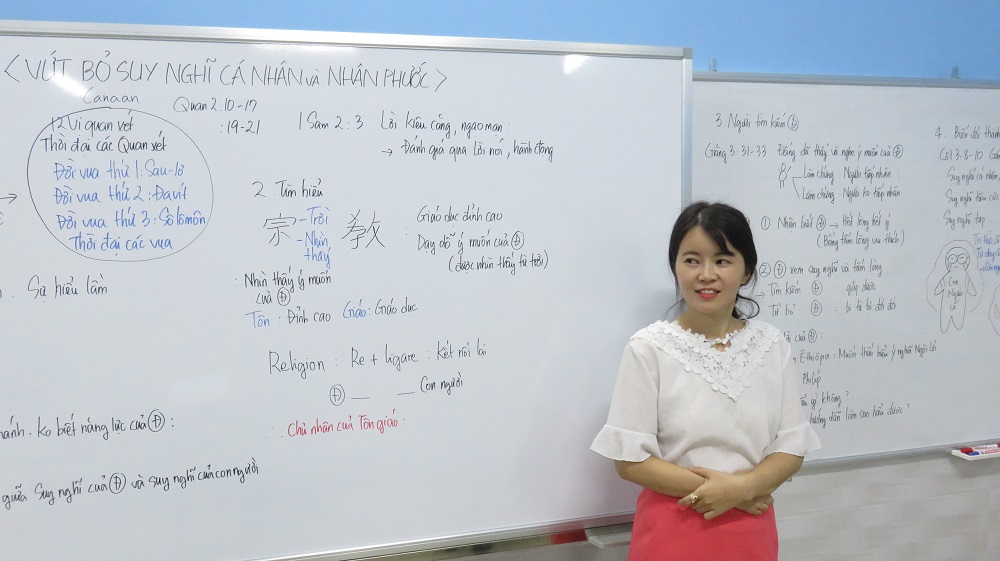 <VỨT BỎ SUY NGHĨ CÁ NHÂN và NHÂN PHƯỚC>
Canaan
Quan 2:10-17
:19-21
12 vị quan xét
Thời đại các Quan xét
Đời vua thứ 1: Sau-lơ
Đời vua thứ 2: Đavít
Đời vua thứ 3: Sôlômôn
Thời đại các vua
Sự hiểu lầm
ko biết năng lực của Đ :
giữa Suy nghĩ của Đ và suy nghĩ của con người
1 Sam 2:3 Lời kiêu căng, ngạo mạn
→ Đánh giá qua Lời nói, hành động
2. Tìm hiểu
宗 - Trời
- Nhìn thấy
教
Giáo dục đỉnh cao
: Dạy dỗ ý muốn của Đ
(được nhìn thấy từ trời)
: Nhìn thấy ý muốn
của Đ
Tôn : Đỉnh cao Giáo : Giáo dục
Religion : Re + ligare : Kết nối lại
Đ __ __ Con người
∴ Chủ nhân của Tôn giáo :
3. Người tìm kiếm Đ
Giăng 3:31-33 Đấng đã thấy và nghe ý muốn của Đ
Làm chứng Người tiếp nhận
Làm chứng Người ko tiếp nhận
① Nhận biết Đ → Hết lòng hết ý
(Bằng tấm lòng vui thích)
② Đ xem suy nghĩ và tấm lòng
→ Tìm kiếm Đ : gặp được
Từ bỏ Đ : bị từ bỏ đời đời
Ethiôpia : Muốn thấu hiểu ý nghĩa Ngôi Lời
Philíp
gì không ?
hướng dẫn làm sao hiểu được ?
4. Biến đổi thành
Côl 3:8-10
Suy nghĩ cá nhân
Suy nghĩ
Suy nghĩ
Con
Người
cũ